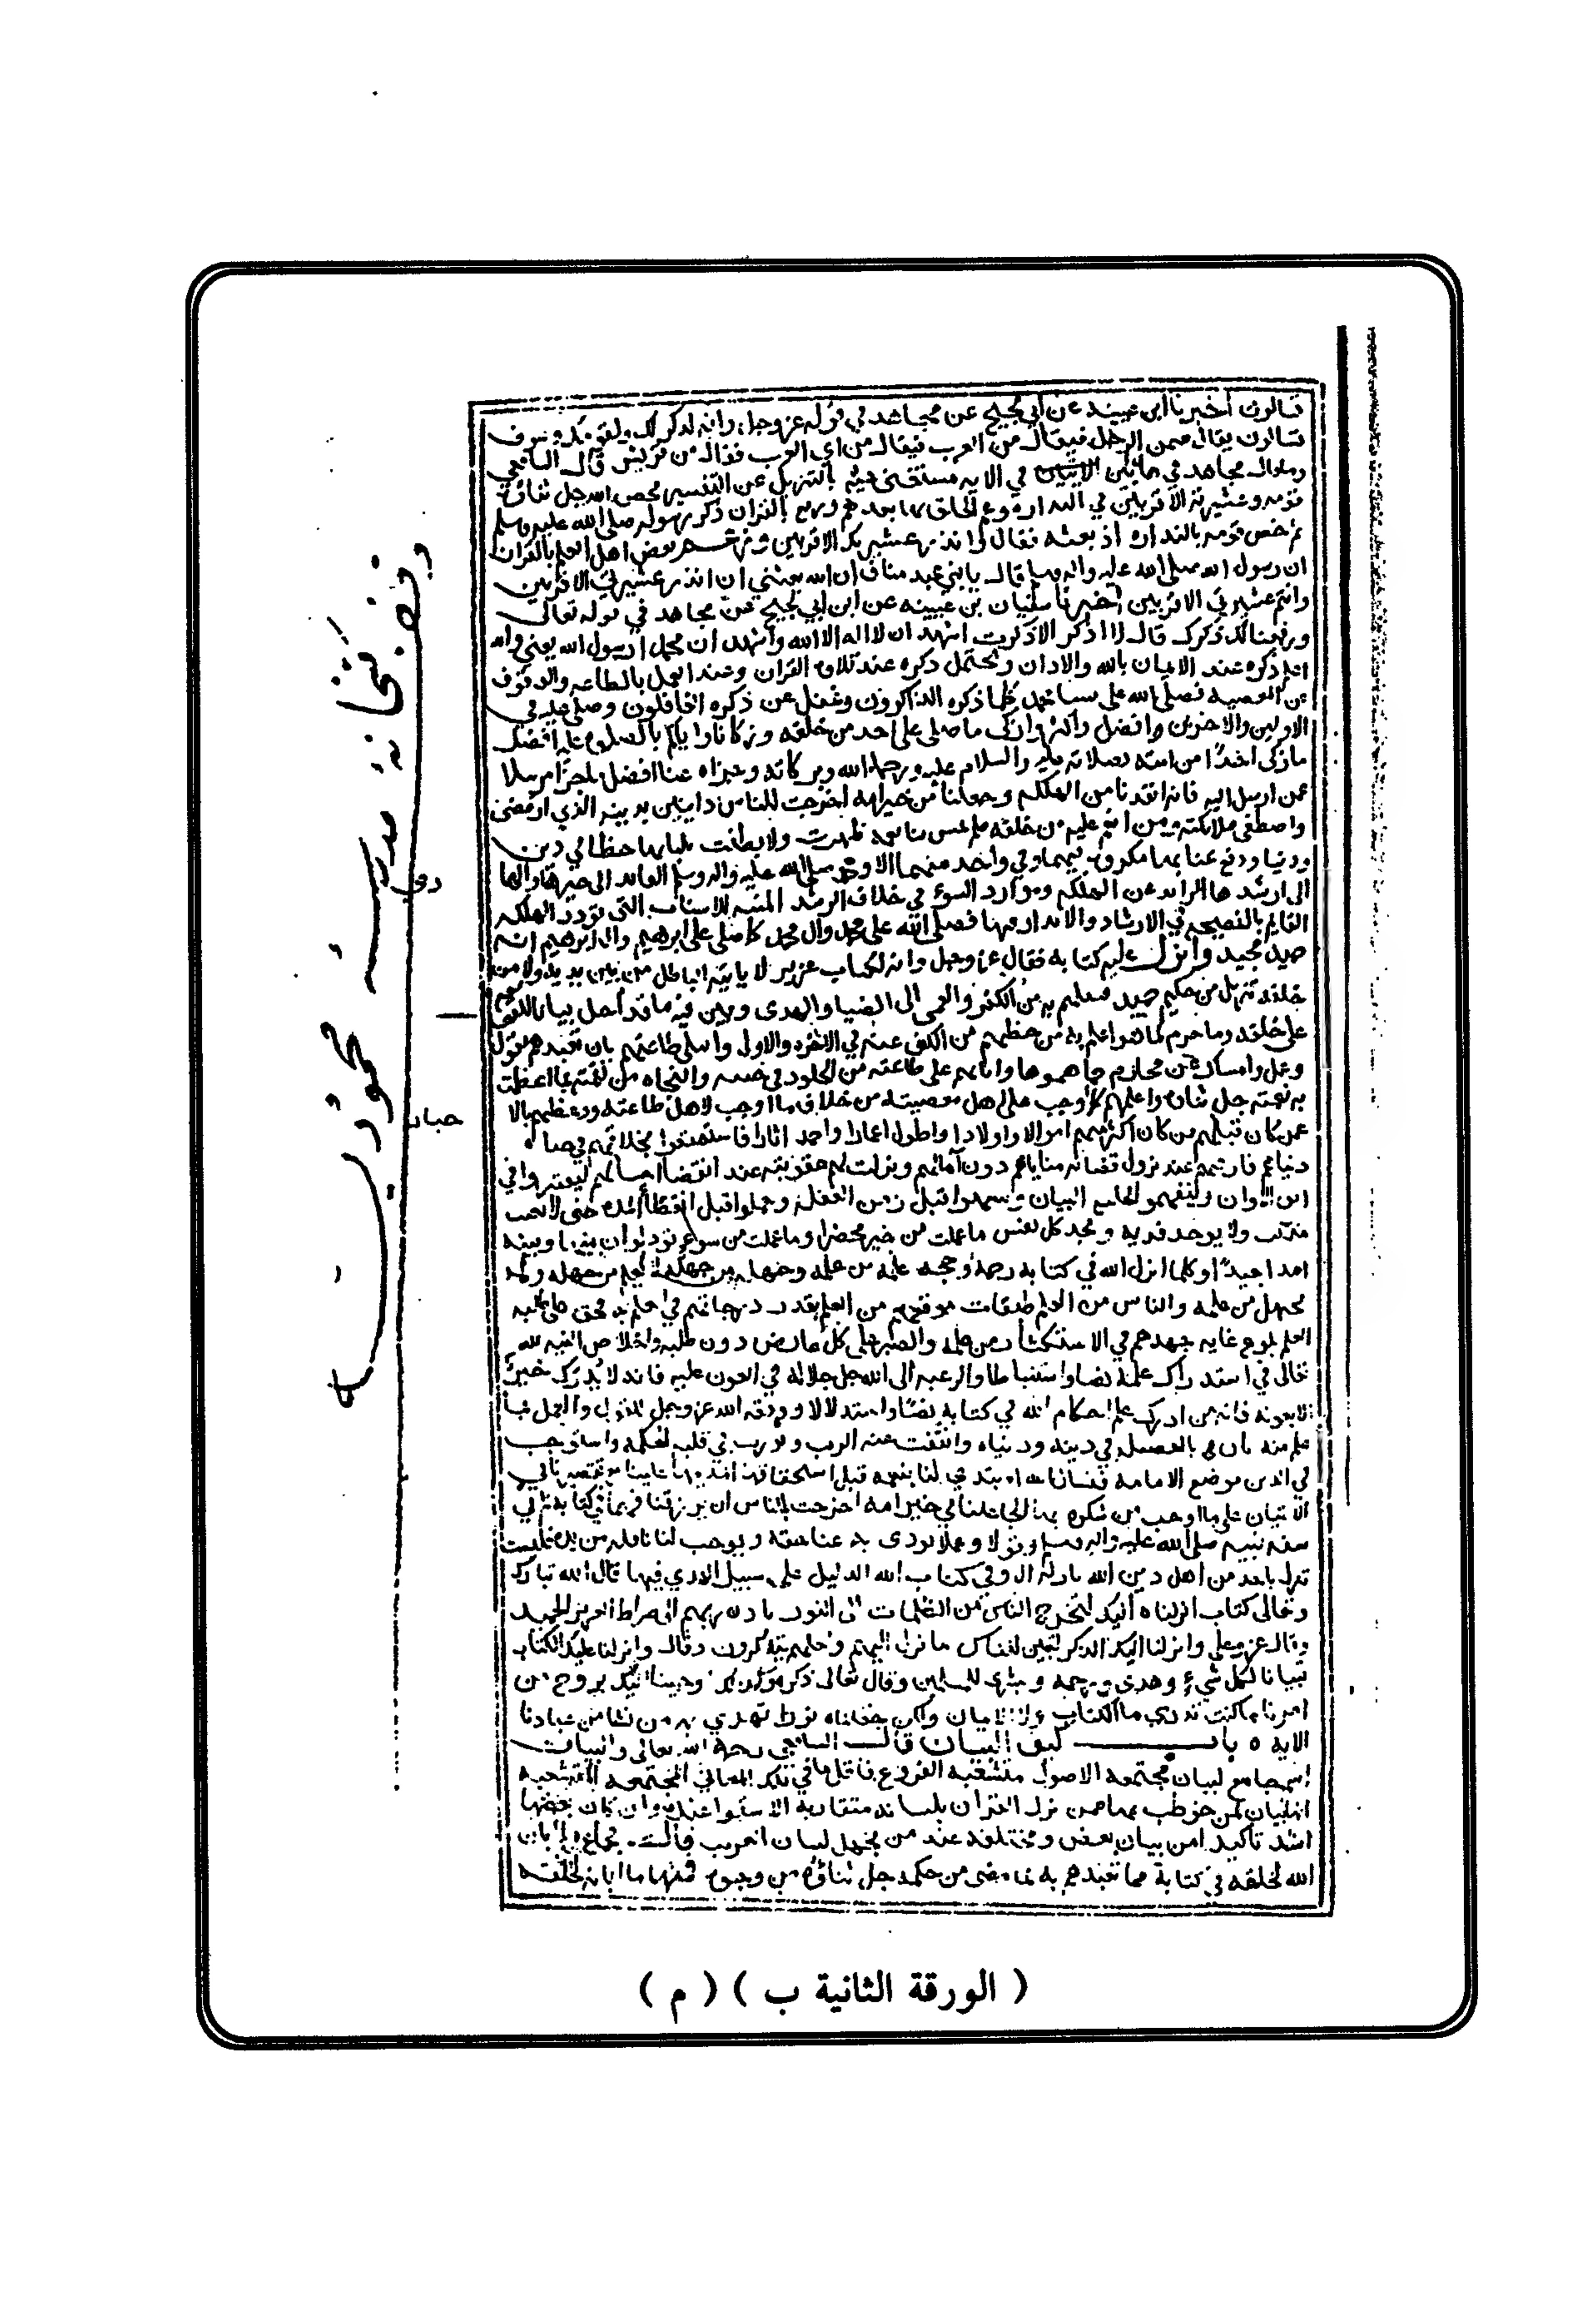 تسالون أخبرنا ابن عيينة عن ابي نجيح عن مجاهد في قوله عز وجل وانه لذكر لك ولقومك وسوف
تسالون يقال ممن الرجل فيقال من العرب فيقال من اي العرب فيقال من قريش قال الشافعي
وما قال مجاهد في هذا بين في الايه مستغنى فيه بالتنزيل عن التفسير فخص الله جل ثناوه
قومه وعشيرته الاقربين في النداره وعم الخلق بها بعدهم ورفع بالقران ذكر رسوله صلى الله عليه وسلم
ثم خص قومه بالنداره اذ بعثه فقال وانذر عشيرتك الاقربين وزعم بعض اهل العلم بالقران
ان رسول الله صلى الله عليه واله وسلم قال يا بني عبد مناف ان الله بعثني ان انذر عشيرتي الاقربين
وانتم عشيرتي الاقربين أخبرنا سفيان بن عيينه عن ابن ابي نجيح عن مجاهد في قوله تعالى
ورفعنا لك ذكرك قال لا اذكر الا ذكرت اشهد ان لا اله الا الله واشهد ان محمدا رسول الله يعني والله
اعلم ذكره عند الايمان بالله والاذان ويحتمل ذكره عند تلاوه القران وعند العمل بالطاعه والوقوف
عن المعصيه فصلى الله على نبينا محمد كلما ذكره الذاكرون وغفل عن ذكره الغافلون وصلى عليه في
الاولين والاخرين وافضل واكثر وازكى ما صلى على احد من خلقه وزكانا واياكم بالصلوه عليه افضل
ما زكى احدًا من امته بصلاته عليه والسلام عليه ورحمة الله وبركاته وجزاه عنا افضل ما جزا مرسلا
عمن ارسل اليه فانه انقذنا من الهلكه وجعلنا من خير امه اخرجت للناس داينين بدينه الذي ارتضى
واصطفى ملائكته ومن انعم عليه من خلقه فلم تمس بنا نعمه ظهرت ولا بطنت نلنا بها حظا في دين
ودنيا ودفع عنا بها مكروه فيهما وفي واحد منهما الا ومحمد صلى الله عليه واله وسلم القائد الى خيرها والهادي
الى ارشدها الزايد عن الهلكه وموارد السوء في خلاف الرشد المنبه للاسباب التي تورد الهلكه
القايم بالنصيحه في الارشاد والانذار فيها فصلى الله على محمد وال محمد كما صلى على ابرهيم وال ابرهيم انه
حميد مجيد وانزل عليه كتابه فقال عز وجل وانه لكتاب عزيز لا ياتيه الباطل من بين يديه ولا من
خلفه تنزيل من حكيم حميد فنقلهم به من الكفر والعمى الى الضيا والهدى وبين فيه ما قد احل
على خلقه وما حرم لما هو اعلم به من حظهم من الكف عنه في الاخره والاولى وابتلى طاعتهم بان تعبدهم بقول
وعمل وامساك عن محارم حماهموها واثابهم على طاعته من الخلود في جنته والنجاه من نقمته ما عظمت
به نعمته جل ثناوه واعلمهم ما اوجب على اهل معصيته من خلاف ما اوجب لاهل طاعته ووعظهم بالاخبار
عمن كان قبلهم ممن كان اكثر منهم اموالا واولادا واطول اعمارا واحمد اثارا فاستمتعوا بخلاقهم في حياة
دنياهم فازعجهم عند نزول قضائه مناياهم دون آمالهم ونزلت بهم عقوبته عند انقضا اجالهم ليعتبروا في
انف الاوان ويتفهموا البيان وينتبهوا قبل رين الغفله ويعملوا قبل انقطاع المده حتى لا يعتب
مذنب ولا يوخذ فديه وتجد كل نفس ما عملت من خير محضرا وما عملت من سوء تود لو ان بينها وبينه
امدا بعيدًا وكلما انزل الله في كتابه رحمة وحجه علمه من علمه وجهله من جهله لا يعلم من جهله ولا
يجهل من علمه والناس من العلم طبقات موقعهم من العلم بقدر درجاتهم في العلم به فحق على طلبه
العلم بلوغ غايه جهدهم في الاستكثار من علمه والصبر على كل عارض دون طلبه واخلاص النيه لله
تعالى في استدراك علمه نصا واستنباطا والرغبه الى الله جل جلاله في العون عليه فانه لا يدرك خير
الا بعونه فانه من ادرك علم احكام الله في كتابه نصا واستدلالا ووفقه الله عز وجل للقول والعمل بما
علم منه فاز بالفضيله في دينه ودنياه وانتفت عنه الريب ونورت في قلبه الحكمه واستوجب
في الدين موضع الامامه فنسال الله المبتدي لنا بنعمه قبل استحقاقها المديمها علينا مع تقصيرنا في
الاتيان على ما اوجب من شكره بها الجاعلنا في خير امه اخرجت للناس ان يرزقنا فهما في كتابه ثم في
سنه نبيه صلى الله عليه واله وسلم وقولا وعملا يودى به عنا حقه ويوجب لنا نافله مزيده فليست
تنزل باحد من اهل دين الله نازله الا وفي كتاب الله الدليل على سبيل الهدي فيها قال الله تبارك
وتعالى كتاب انزلناه اليك لتخرج الناس من الظلمات الى النور باذن ربهم الى صراط العزيز الحميد
وقال عز وعلى وانزلنا اليك الذكر لتبين للناس ما نزل اليهم ولعلهم يتفكرون وقال ونزلنا عليك الكتاب
تبيانا لكل شيء وهدى ورحمه وبشرى للمسلمين وقال تعالى ذكره وكذلك اوحينا اليك روحا من
امرنا ما كنت تدري ما الكتاب ولا الايمان ولكن جعلناه نورا نهدي به من نشا من عبادنا
الايه ه باب كيف البيان قال الشافعي رحمة الله تعالى والبيان
اسم جامع لمعان مجتمعه الاصول متشعبه الفروع فاقل ما في تلك المعاني المجتمعه المتشعبه
انها بيان لمن خوطب بها ممن نزل القران بلسانه متقاربه الاستوا عنده وان كان بعضها
اشد تاكيد امن بيان بعض ومختلفه عند من يجهل لسان العرب قال فجماع ما ابان
الله لخلقه في كتابة مما تعبدهم به لما مضى من حكمه جل ثناؤه من وجوه فمنها ما ابانه لخلقه
وقف كتبخانة مدرسه محموديه
( الورقة الثانية ب ) ( م )